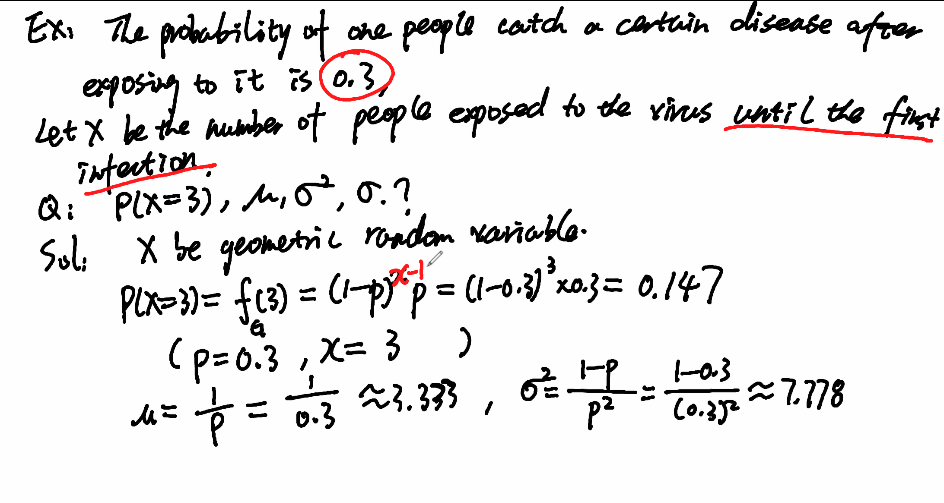 Ex: The probability of one people catch a certain disease after
exposing to it is 0.3,
Let X be the number of people exposed to the virus until the first
infection.
Q: P(X=3), μ, σ², σ.?
Sol: X be geometric random variable.
P(X=3) = f_G(3) = (1-p)^{x-1} p = (1-0.3)^3 × 0.3 = 0.147
( p=0.3 , x= 3 )
μ = 1/p = 1/0.3 ≈ 3.333 , σ² = (1-p)/p² = (1-0.3)/(0.3)² ≈ 7.778